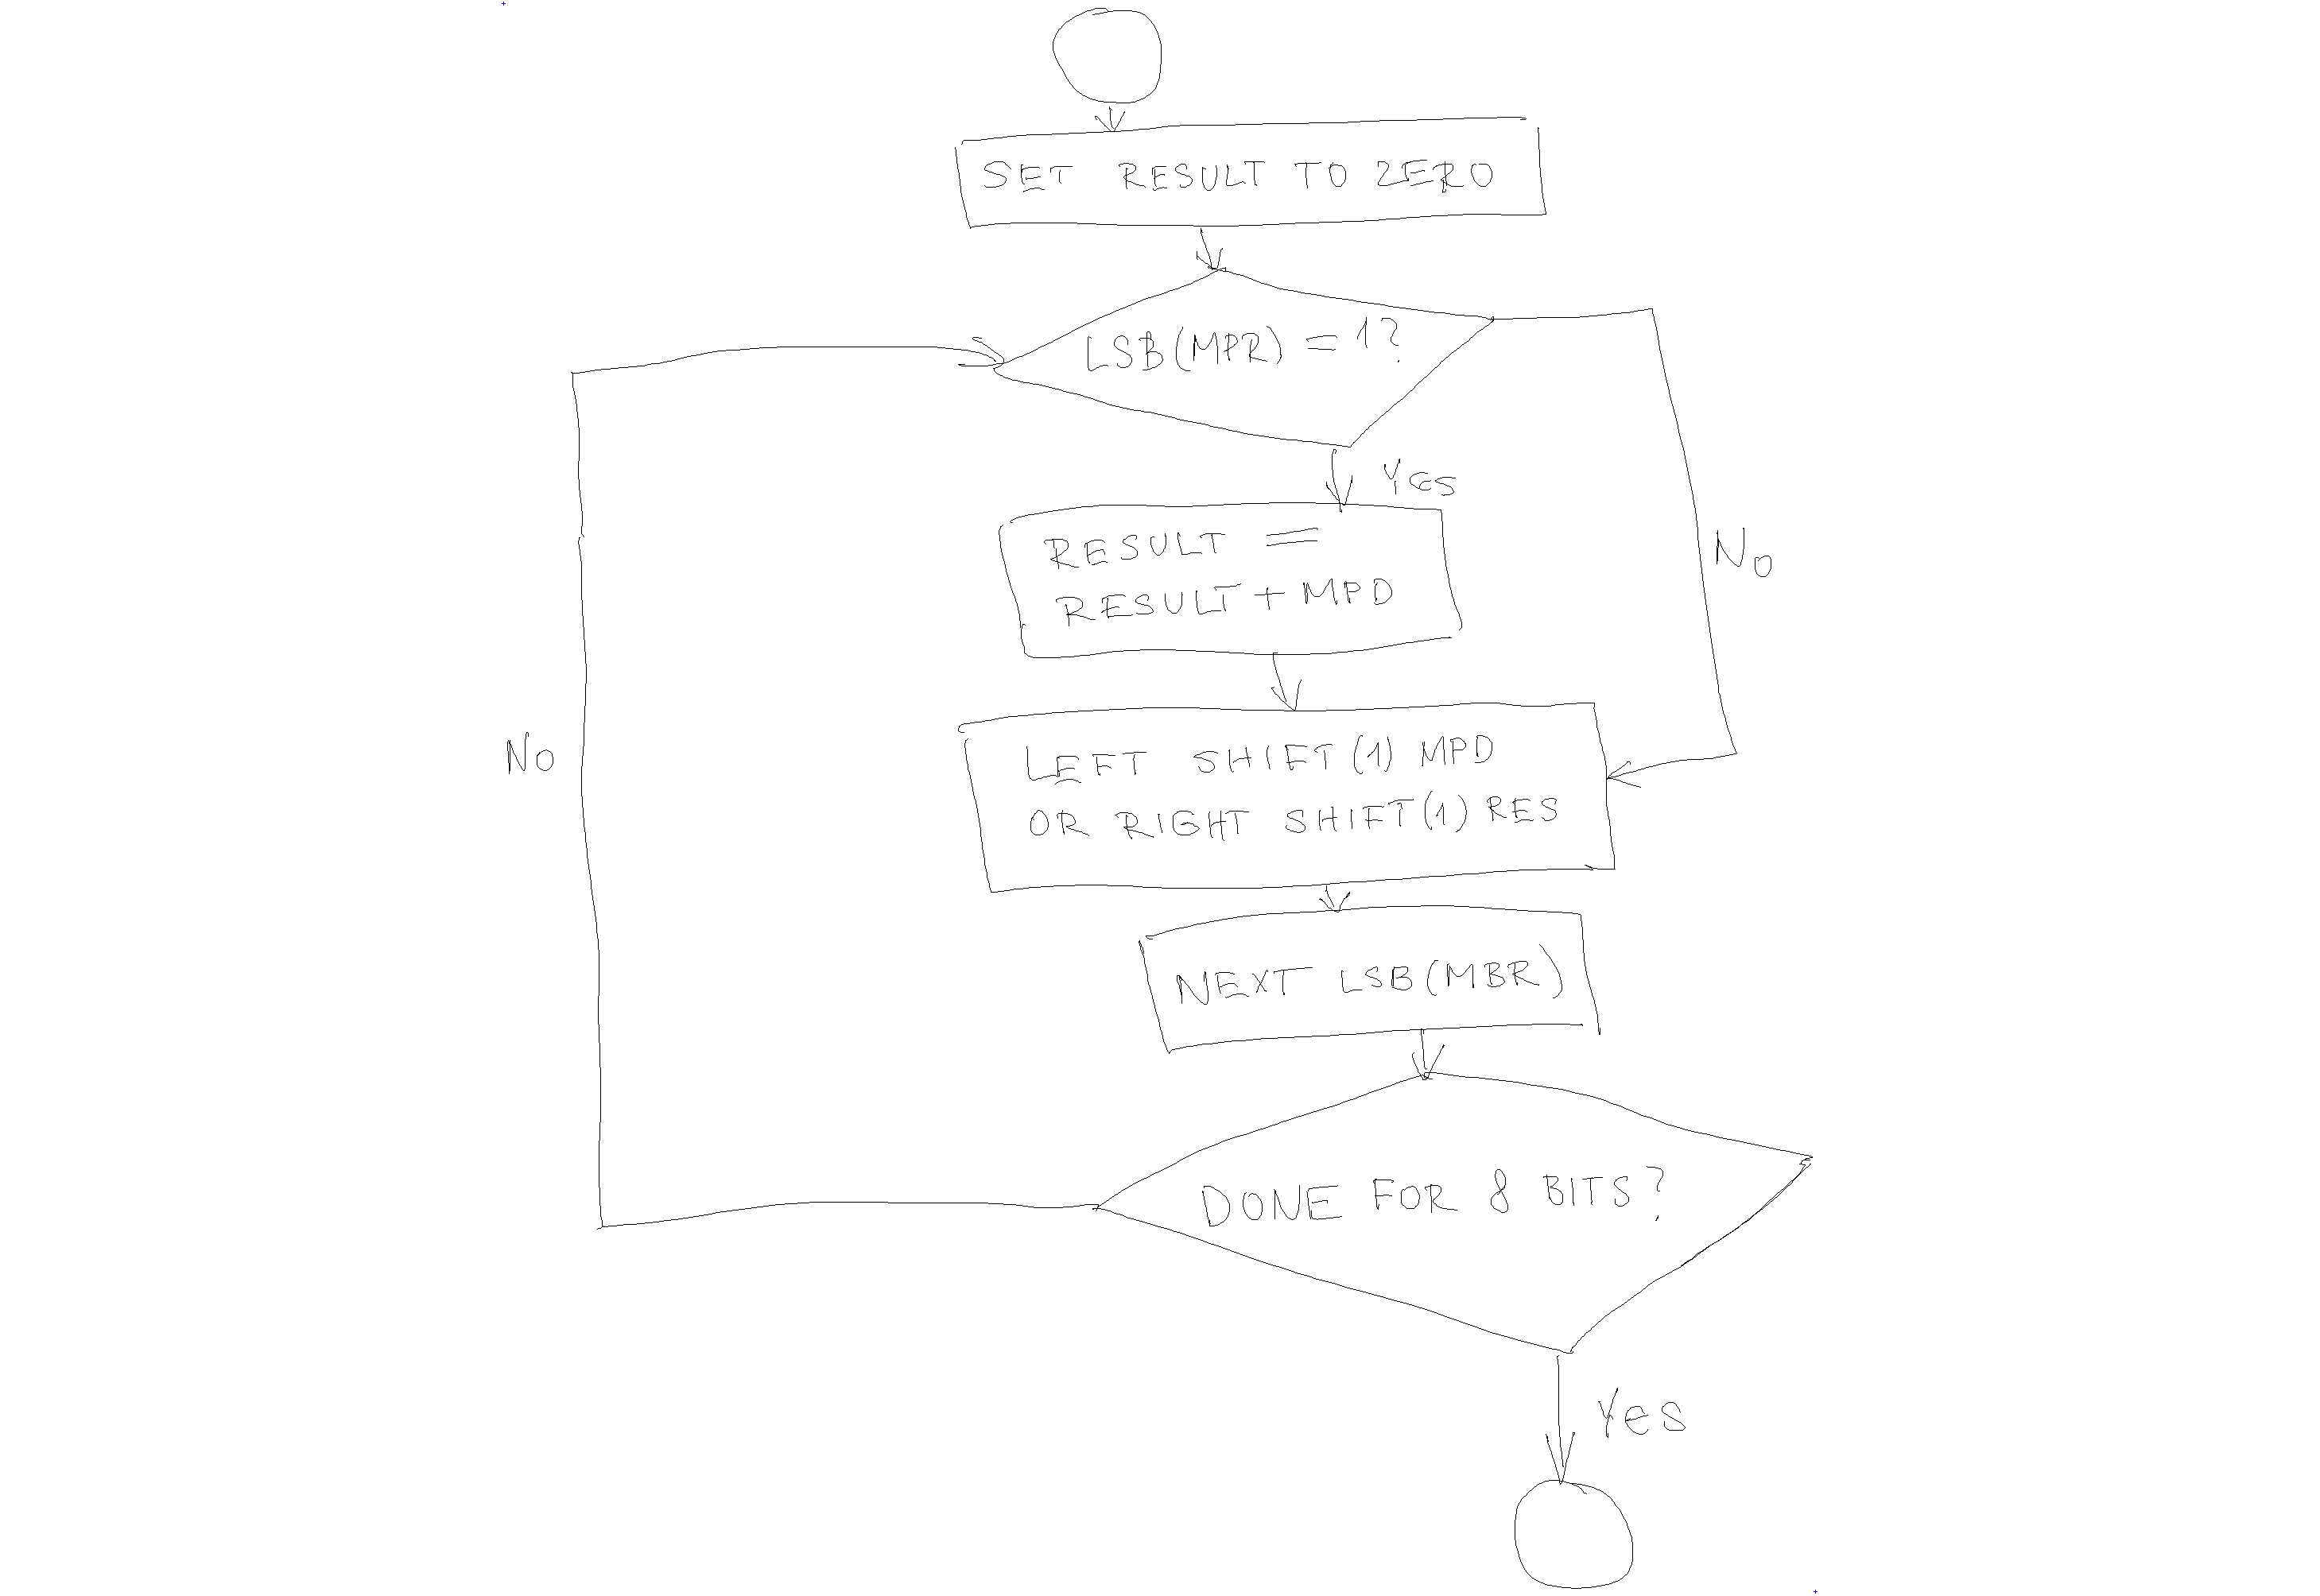 SET RESULT TO ZERO
LSB(MPR) = 1?
YES
RESULT =
RESULT + MPD
No
LEFT SHIFT(1) MPD
OR RIGHT SHIFT(1) RES
No
NEXT LSB(MBR)
DONE FOR 8 BITS?
YES